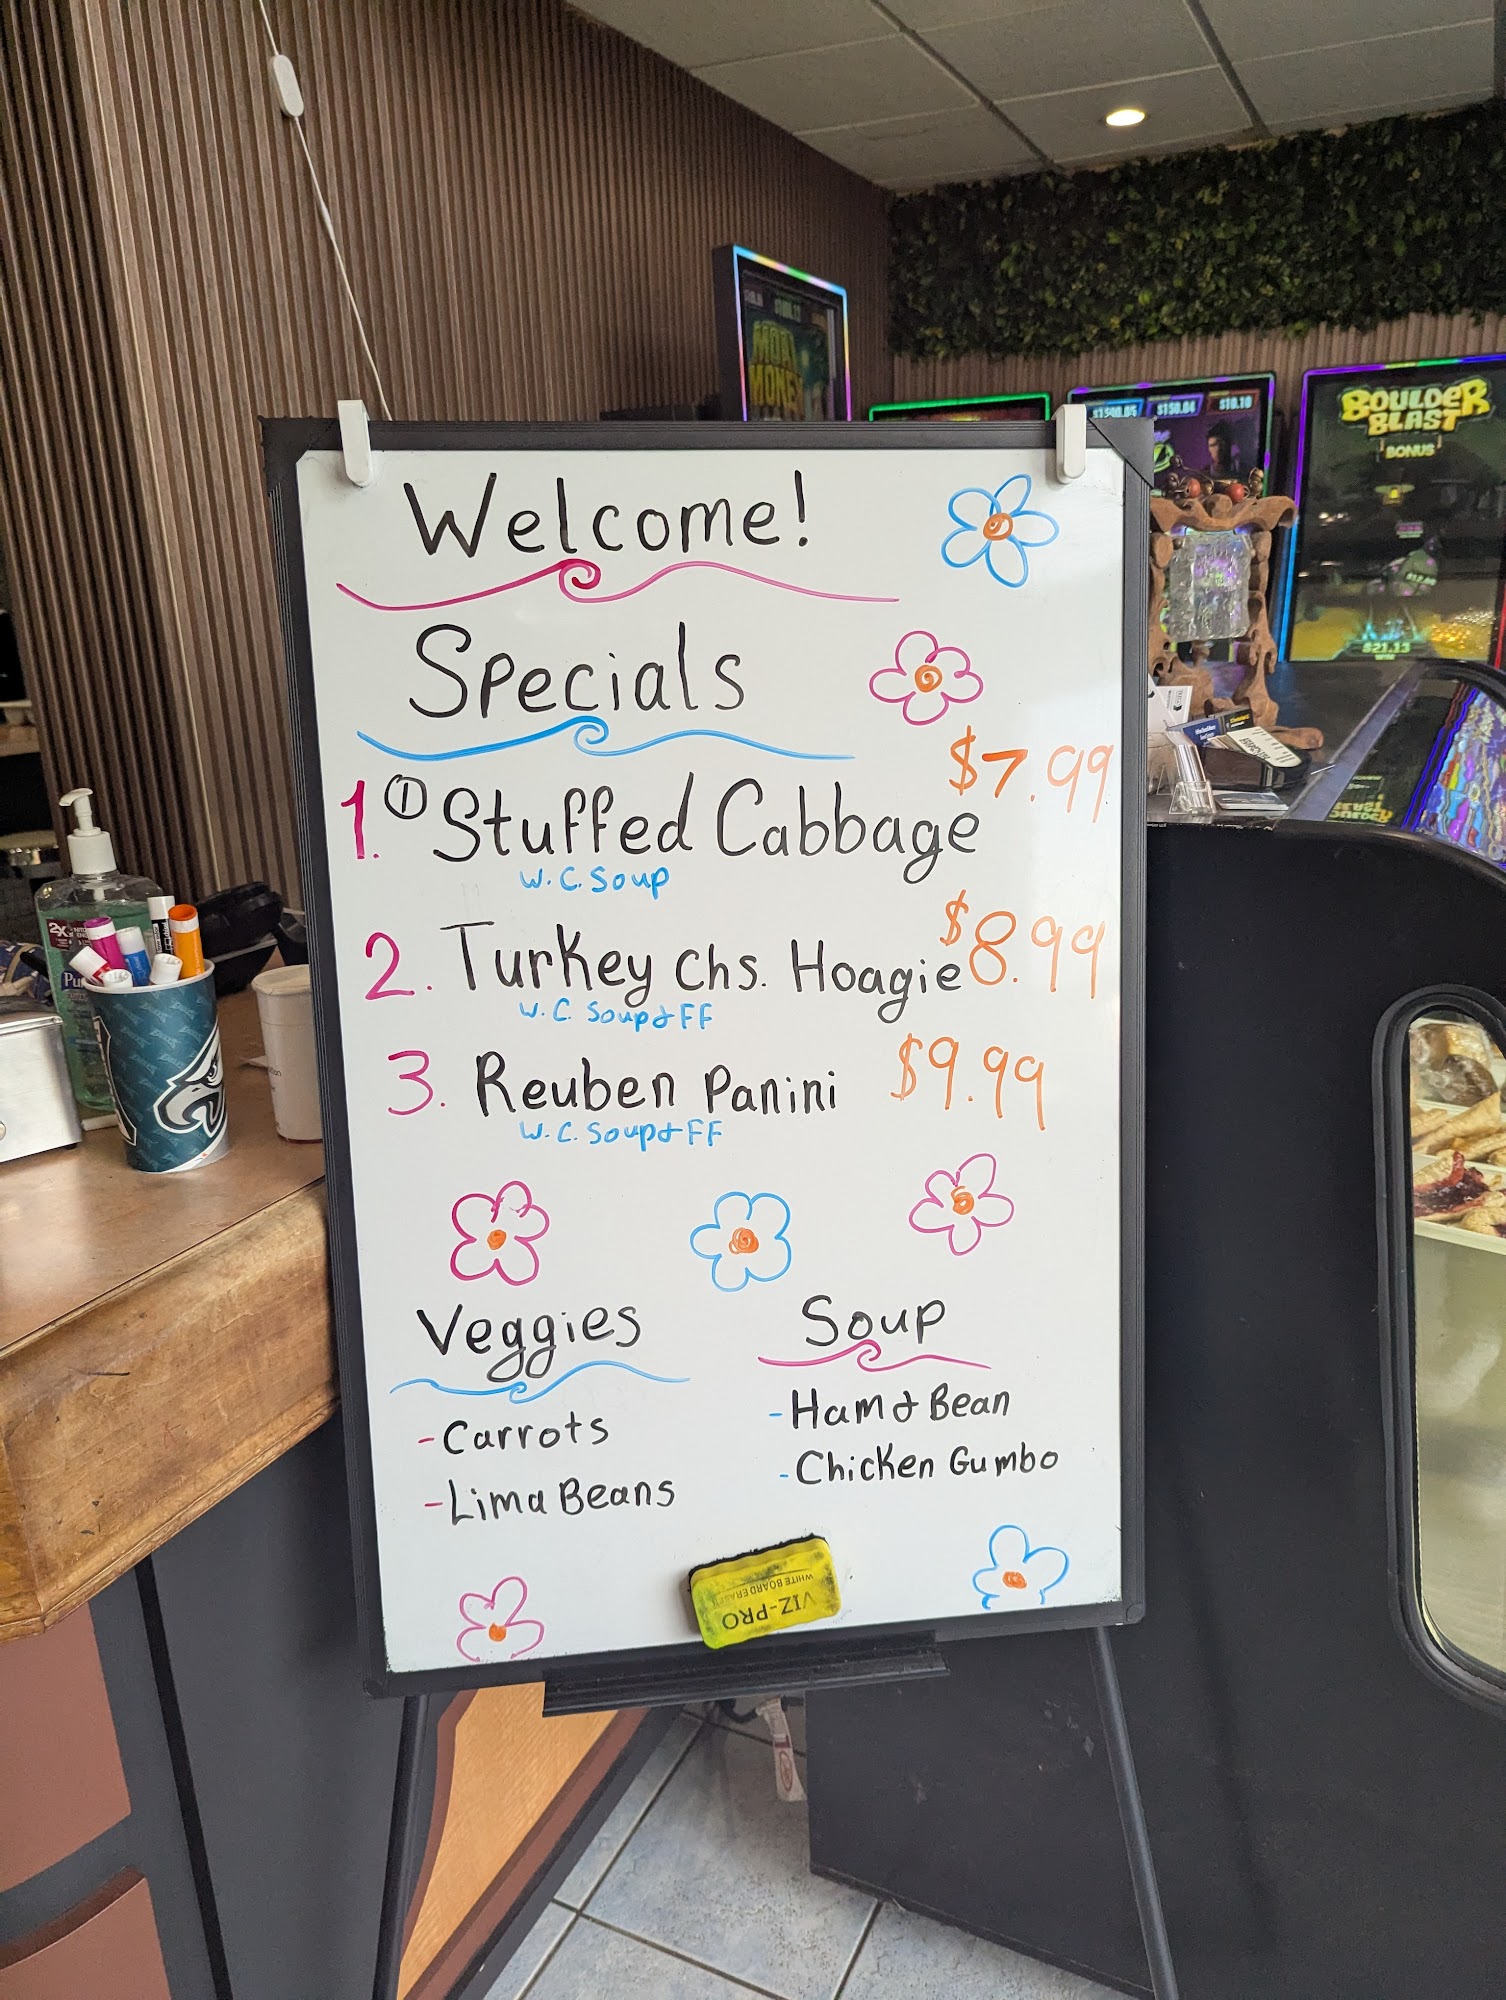 Welcome!
Specials
$7.99
1. ① Stuffed Cabbage
W.C. Soup
2. Turkey Chs. Hoagie $8.99
W.C. Soup & FF
3. Reuben Panini $9.99
W.C. Soup & FF
Veggies
- Carrots
- Lima Beans
Soup
- Ham & Bean
- Chicken Gumbo
VIZ-PRO
WHITE BOARD ERASER
BOULDER
BLAST
BONUS
$21.13
WIN
$1500.05 $150.04 $10.10
2X
Pu